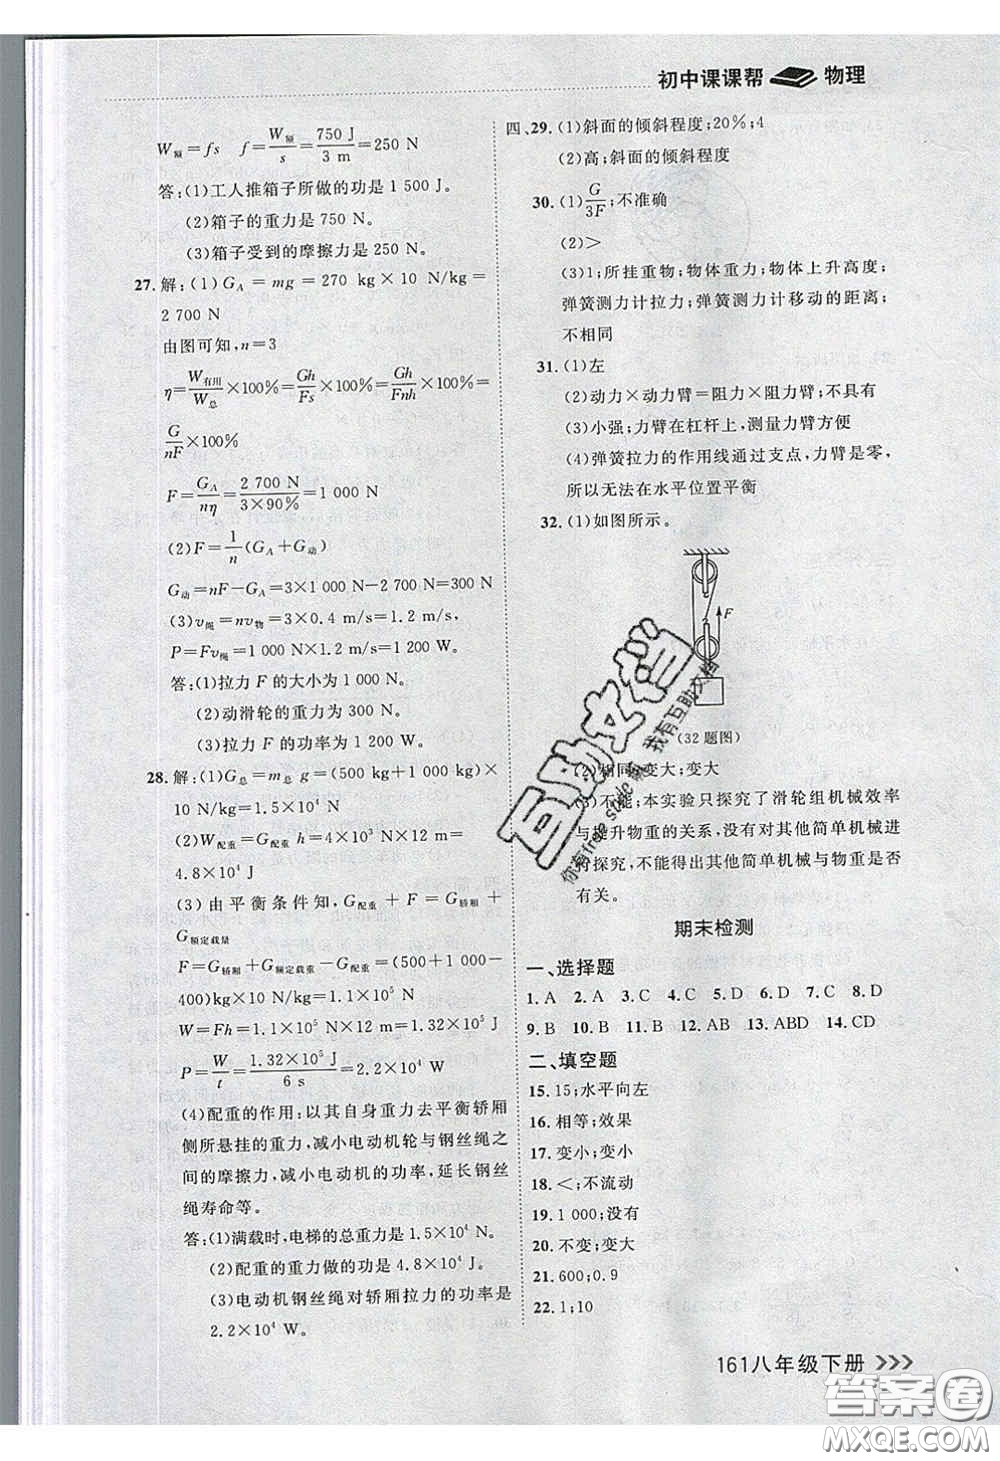 初中课课帮 物理
W额=fs f=W额/s=750 J/3 m=250 N
答:(1)工人推箱子所做的功是 1 500 J。
(2)箱子的重力是 750 N。
(3)箱子受到的摩擦力是 250 N。
27.解:(1)G_A=mg=270 kg×10 N/kg=
2 700 N
由图可知,n=3
η=W有用/W总×100%=Gh/Fs×100%=Gh/Fnh×100%=
G/nF×100%
F=G_A/nη=2 700 N/3×90%=1 000 N
(2)F=1/n(G_A+G动)
G动=nF-G_A=3×1 000 N-2 700 N=300 N
(3)v绳=nv物=3×0.4 m/s=1.2 m/s,
P=Fv绳=1 000 N×1.2 m/s=1 200 W。
答:(1)拉力 F 的大小为 1 000 N。
(2)动滑轮的重力为 300 N。
(3)拉力 F 的功率为 1 200 W。
28.解:(1)G总=m总 g=(500 kg+1 000 kg)×
10 N/kg=1.5×10⁴ N
(2)W配重=G配重 h=4×10³ N×12 m=
4.8×10⁴ J
(3)由平衡条件知,G配重+F=G轿厢+
G额定载量
F=G轿厢+G额定载重-G配重=(500+1 000-
400)kg×10 N/kg=1.1×10⁵ N
W=Fh=1.1×10⁵ N×12 m=1.32×10⁵ J
P=W/t=1.32×10⁵ J/6 s=2.2×10⁴ W
(4)配重的作用:以其自身重力去平衡轿厢
侧所悬挂的重力,减小电动机轮与钢丝绳之
间的摩擦力,减小电动机的功率,延长钢丝
绳寿命等。
答:(1)满载时,电梯的总重力是 1.5×10⁴ N。
(2)配重的重力做功是 4.8×10⁴ J。
(3)电动机钢丝绳对轿厢拉力的功率是
2.2×10⁴ W。
四、29.(1)斜面的倾斜程度;20%;4
(2)高;斜面的倾斜程度
30.(1)G/3F;不准确
(2)>
(3)1;所挂重物;物体重力;物体上升高度;
弹簧测力计拉力;弹簧测力计移动的距离;
不相同
31.(1)左
(2)动力×动力臂=阻力×阻力臂;不具有
(3)小强;力臂在杠杆上,测量力臂方便
(4)弹簧拉力的作用线通过支点,力臂是零,
所以无法在水平位置平衡
32.(1)如图所示。
F
(32 题图)
(2)相同;变大;变大
(3)不能;本实验只探究了滑轮组机械效率
与提升物重的关系,没有对其他简单机械进
行探究,不能得出其他简单机械与物重是否
有关。
期末检测
一、选择题
1. A 2. A 3. C 4. B 5. D 6. D 7. C 8. D
9. B 10. B 11. B 12. AB 13. ABD 14. CD
二、填空题
15. 15;水平向左
16. 相等;效果
17. 变小;变小
18. <;不流动
19. 1 000;没有
20. 不变;变大
21. 600;0.9
22. 1;10
161八年级下册
互助文档
我有互助文档
答案卷
MXQE.COM